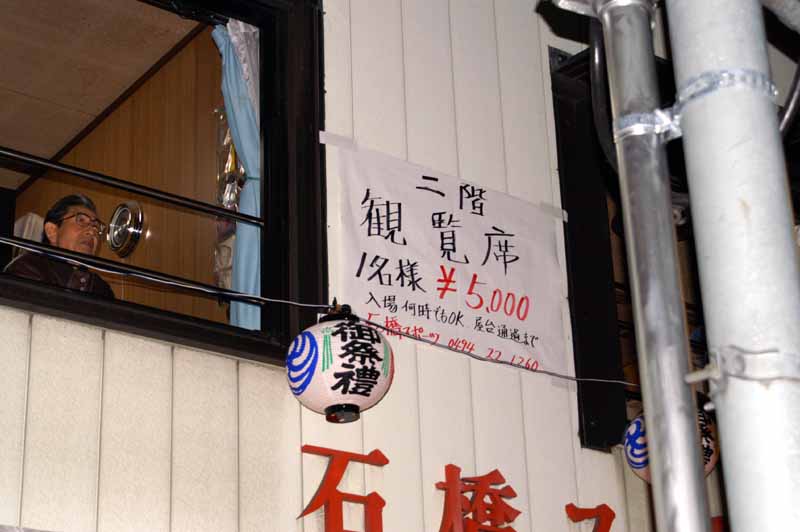 二階
観覧席
1名様 ¥5,000
入場何時でもOK 屋台通過まで
石橋スポーツ 0494 22 1260
御祭禮
石橋ス